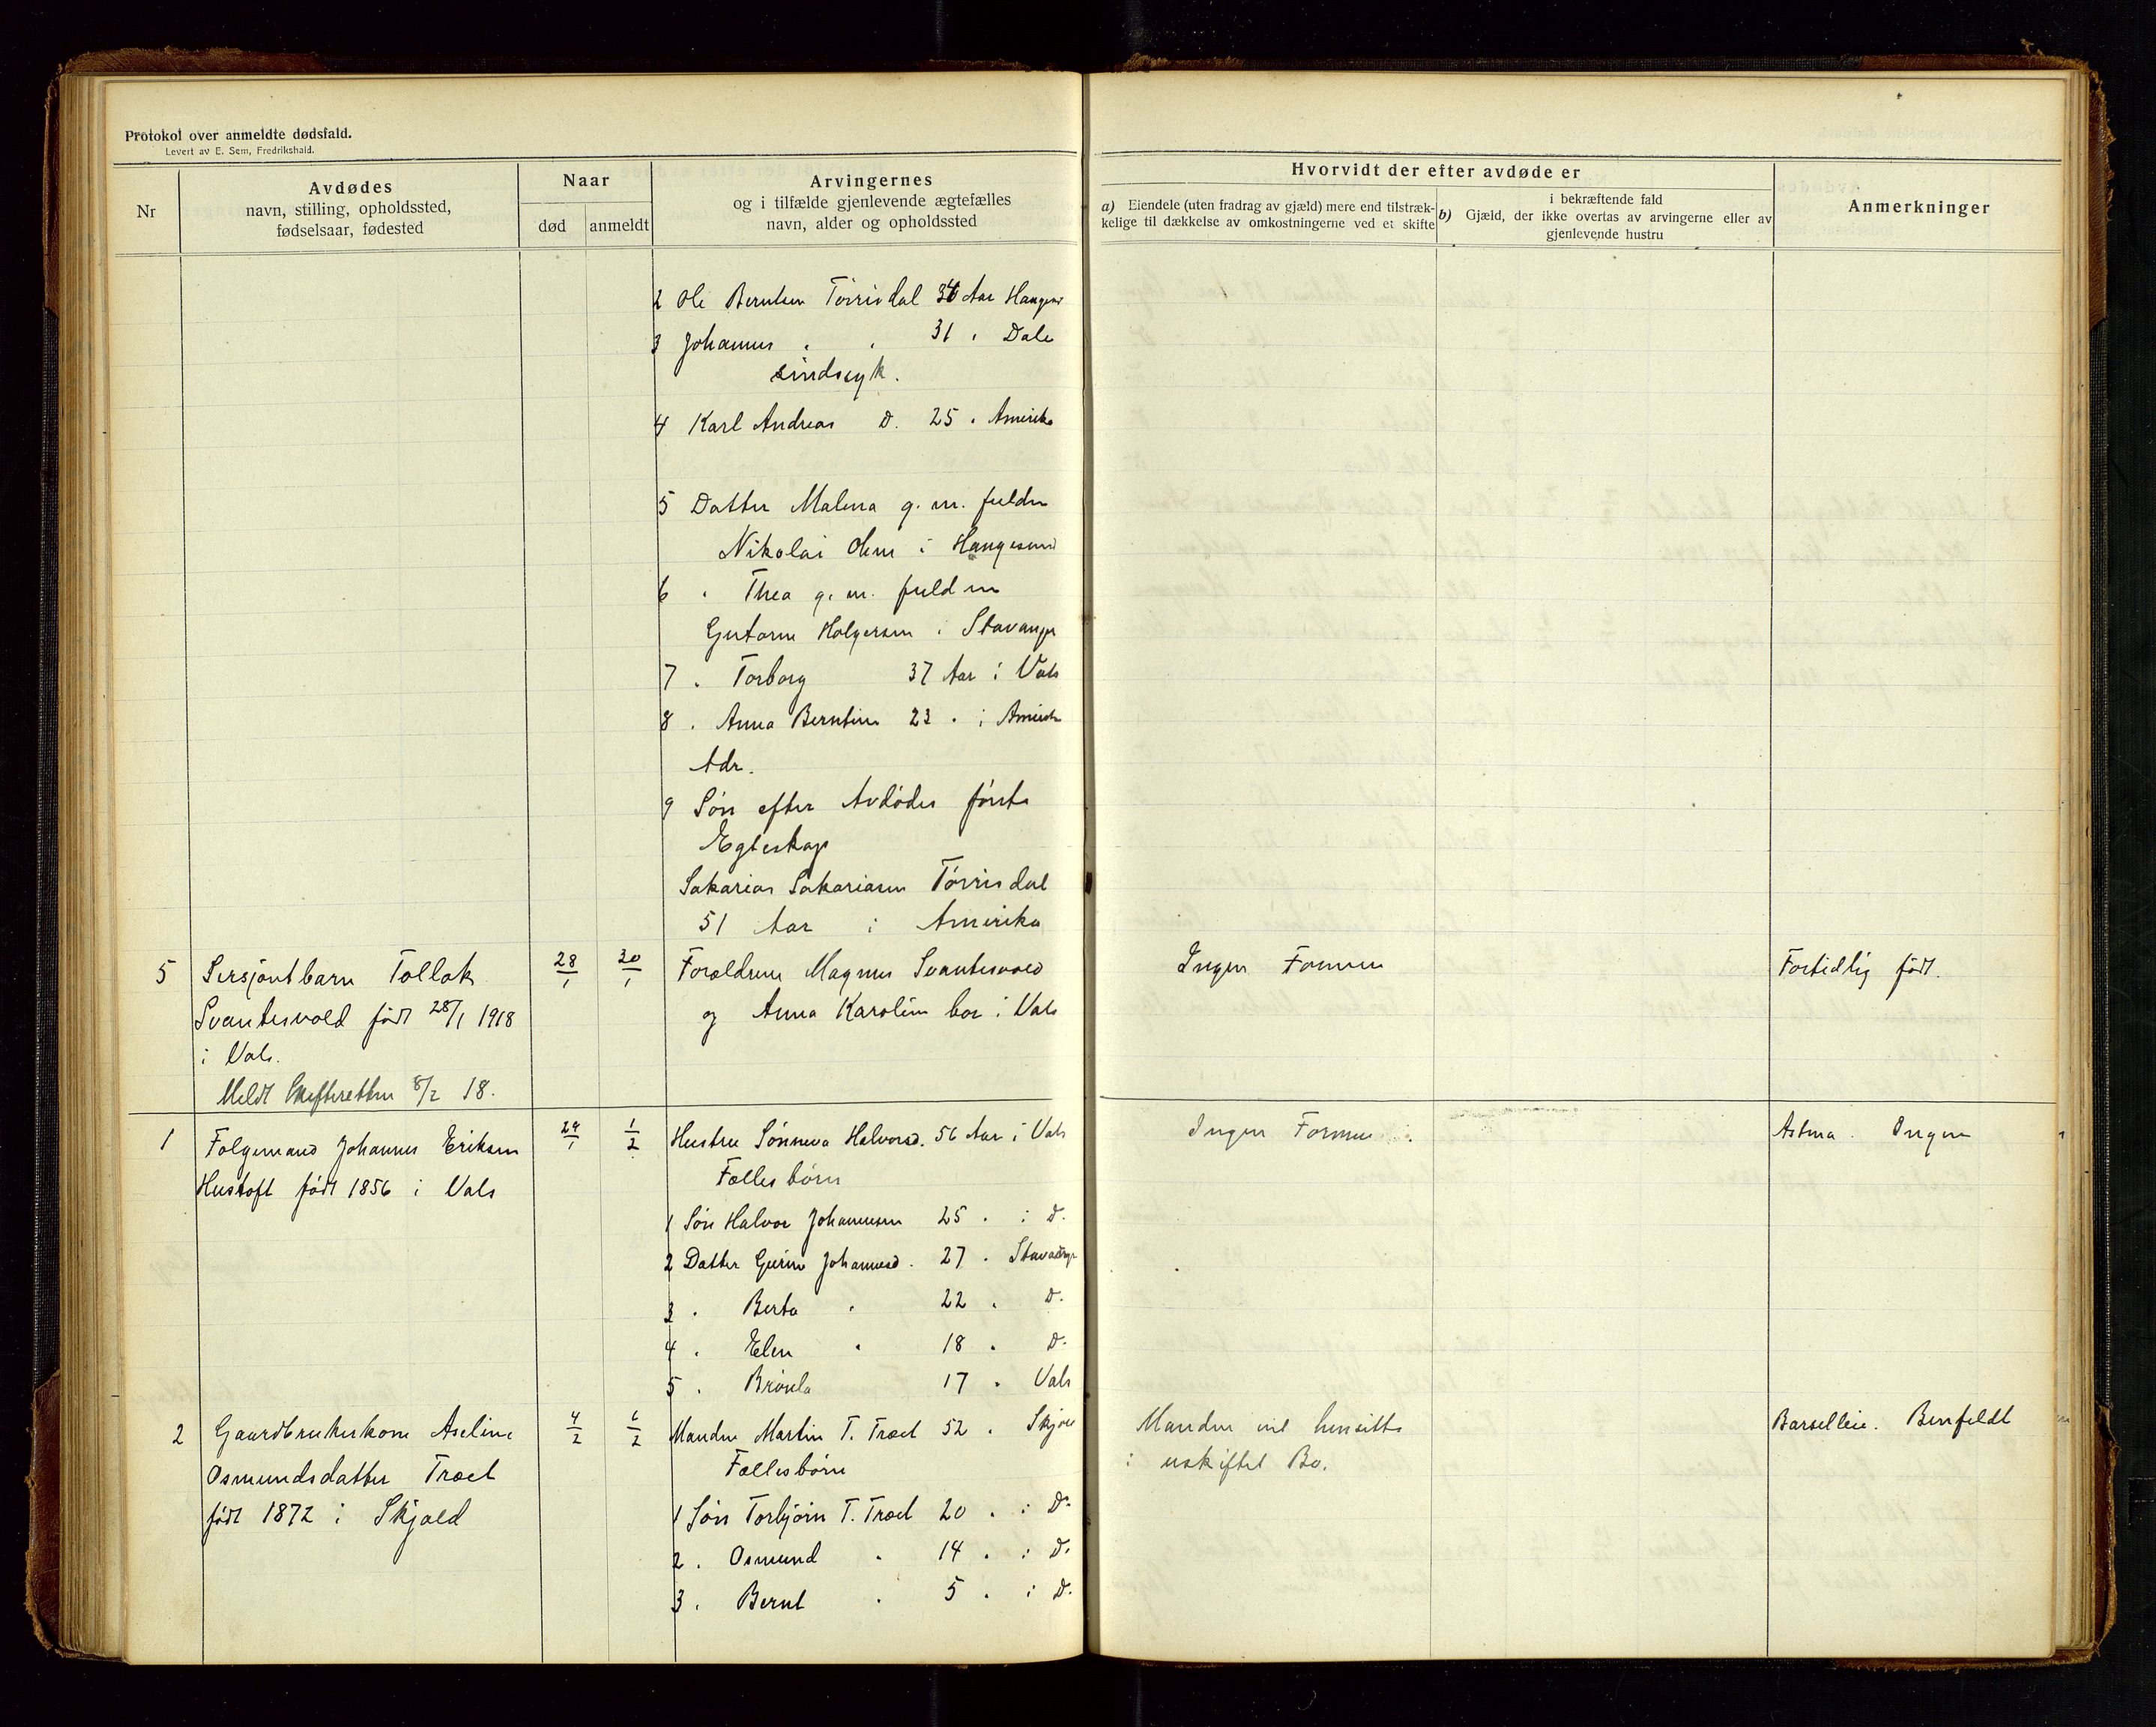 Protokol over anmeldte dødsfald.
Levert av E. Sem, Fredrikshald.
Nr
Avdødes
navn, stilling, opholdssted,
fødselsaar, fødested
Naar
død
anmeldt
Arvingernes
og i tilfælde gjenlevende ægtefælles
navn, alder og opholdssted
Hvorvidt der efter avdøde er
a) Eiendele (uten fradrag av gjæld) mere end tilstræk-
kelige til dækkelse av omkostningerne ved et skifte
i bekræftende fald
b) Gjæld, der ikke overtas av arvingerne eller av
gjenlevende hustru
Anmerkninger
2 Ole Berntsen Törrisdal Aar
3 Johannes " " 31 " Dale
sindssyk.
4 Karl Andreas D. 25 " Amerika
5 Datter Malena g. m.
Nikolai Olsen i Haugesund
6 " Thea g. m.
Gutorm Holgersen i Stavanger
7 " Torborg 37 Aar i Vats
8 " Anna Berntine 23 " i Amerika
Adr.
9 Sön efter Avdödes förste
Egteskap
Sakarias Sakariasen Törrisdal
51 Aar i Amerika
5 Sersjantbarn Tollak
Svantesvold födt 28/1 1918
i Vats.
Meldt Skifteretten 8/2 18.
28/1
30/1
Forældrene Magnus Svantesvold
og Anna Karoline bor i Vats
Ingen Formue
Fortidlig födt.
1 Folgemand Johannes Eriksen
Hustoft födt 1856 i Vats
29/1
1/2
Hustru Sönneva Halvorsd. 56 Aar i Vats
Fælles börn
1 Sön Halvor Johannesen 25 " i D.
2 Datter Gurine Johannesd. 27 " Stavanger
3 " Berta " 22 " D.
4 " Elen " 18 " D.
5 " 17 " Vats
Ingen Formue
Astma. Ingen
2 Gaardbrukerkone Aseline
Osmundsdatter Træet
födt 1872 i Skjold
4/2
6/2
Manden Martin T. Træet 52 " Skjold
Fællesbörn
1 Sön Torbjörn T. Træet 20 " i D.
2 " Osmund " 14 " i D.
3 " Bernt " 5 " i D.
Manden vil hensitte
i uskiftet Bo.
Barselleie. Benfeldt